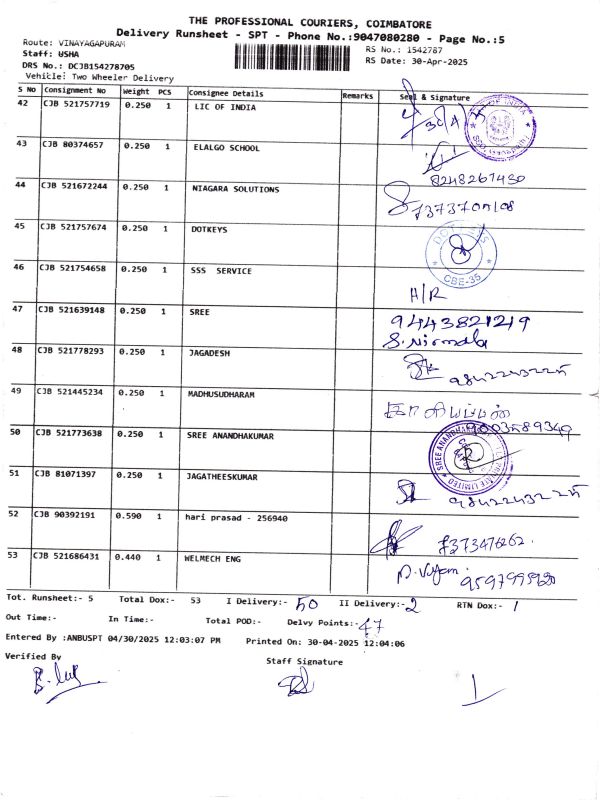 THE PROFESSIONAL COURIERS, COIMBATORE
Delivery Runsheet - SPT - Phone No.:9047080280 - Page No.:5
Route: VINAYAGAPURAM
Staff: USHA
DRS No.: DCJB154278705
Vehicle: Two Wheeler Delivery
RS No.: 1542787
RS Date: 30-Apr-2025
S No Consignment No Weight PCS Consignee Details Remarks Seal & Signature
42 CJB 521757719 0.250 1 LIC OF INDIA
43 CJB 80374657 0.250 1 ELALGO SCHOOL
8248267450
44 CJB 521672244 0.250 1 NIAGARA SOLUTIONS
45 CJB 521757674 0.250 1 DOTKEYS
CBE-35
46 CJB 521754658 0.250 1 SSS SERVICE
H/R
47 CJB 521639148 0.250 1 SREE
9443821219
S. Nirmala
48 CJB 521778293 0.250 1 JAGADESH
49 CJB 521445234 0.250 1 MADHUSUDHARAM
9003589349
50 CJB 521773638 0.250 1 SREE ANANDHAKUMAR
51 CJB 81071397 0.250 1 JAGATHEESKUMAR
52 CJB 90392191 0.590 1 hari prasad - 256940
7373476262.
53 CJB 521686431 0.440 1 WELMECH ENG
Tot. Runsheet:- 5 Total Dox:- 53 I Delivery:- 50 II Delivery:- 2 RTN Dox:- 1
Out Time:- In Time:- Total POD:- Delvy Points:- 47
Entered By :ANBUSPT 04/30/2025 12:03:07 PM Printed On: 30-04-2025 12:04:06
Verified By
Staff Signature